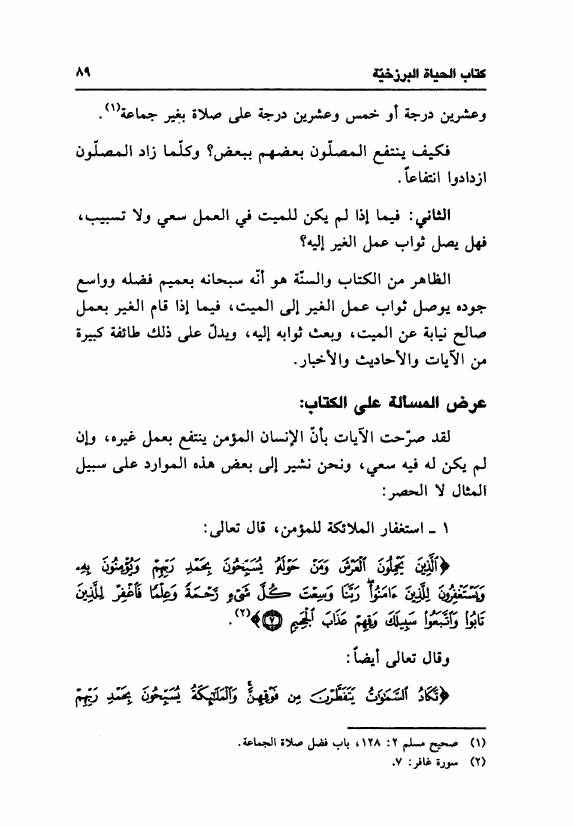 كتاب الحياة البرزخيّة ٨٩
وعشرين درجة أو خمس وعشرين درجة على صلاة بغير جماعة(١).
فكيف ينتفع المصلّون بعضهم ببعض؟ وكلّما زاد المصلّون
ازدادوا انتفاعاً.
الثاني: فيما إذا لم يكن للميت في العمل سعي ولا تسبيب،
فهل يصل ثواب عمل الغير إليه؟
الظاهر من الكتاب والسنّة هو أنّه سبحانه بعميم فضله وواسع
جوده يوصل ثواب عمل الغير إلى الميت، فيما إذا قام الغير بعمل
صالح نيابة عن الميت، وبعث ثوابه إليه، ويدلّ على ذلك طائفة كبيرة
من الآيات والأحاديث والأخبار.
عرض المسالة على الكتاب:
لقد صرّحت الآيات بأنّ الإنسان المؤمن ينتفع بعمل غيره، وإن
لم يكن له فيه سعي، ونحن نشير إلى بعض هذه الموارد على سبيل
المثال لا الحصر:
١ ـ استغفار الملائكة للمؤمن، قال تعالى:
﴿ٱلَّذِينَ يَحْمِلُونَ ٱلْعَرْشَ وَمَنْ حَوْلَهُۥ يُسَبِّحُونَ بِحَمْدِ رَبِّهِمْ وَيُؤْمِنُونَ بِهِۦ
وَيَسْتَغْفِرُونَ لِلَّذِينَ ءَامَنُوا۟ۖ رَبَّنَا وَسِعْتَ كُلَّ شَىْءٍ رَّحْمَةً وَعِلْمًا فَٱغْفِرْ لِلَّذِينَ
تَابُوا۟ وَٱتَّبَعُوا۟ سَبِيلَكَ وَقِهِمْ عَذَابَ ٱلْجَحِيمِ ٧﴾(٢).
وقال تعالى أيضاً:
﴿تَكَادُ ٱلسَّمَٰوَٰتُ يَتَفَطَّرْنَ مِن فَوْقِهِنَّۚ وَٱلْمَلَٰٓئِكَةُ يُسَبِّحُونَ بِحَمْدِ رَبِّهِمْ
(١) صحيح مسلم ٢: ١٢٨، باب فضل صلاة الجماعة.
(٢) سورة غافر: ٧.